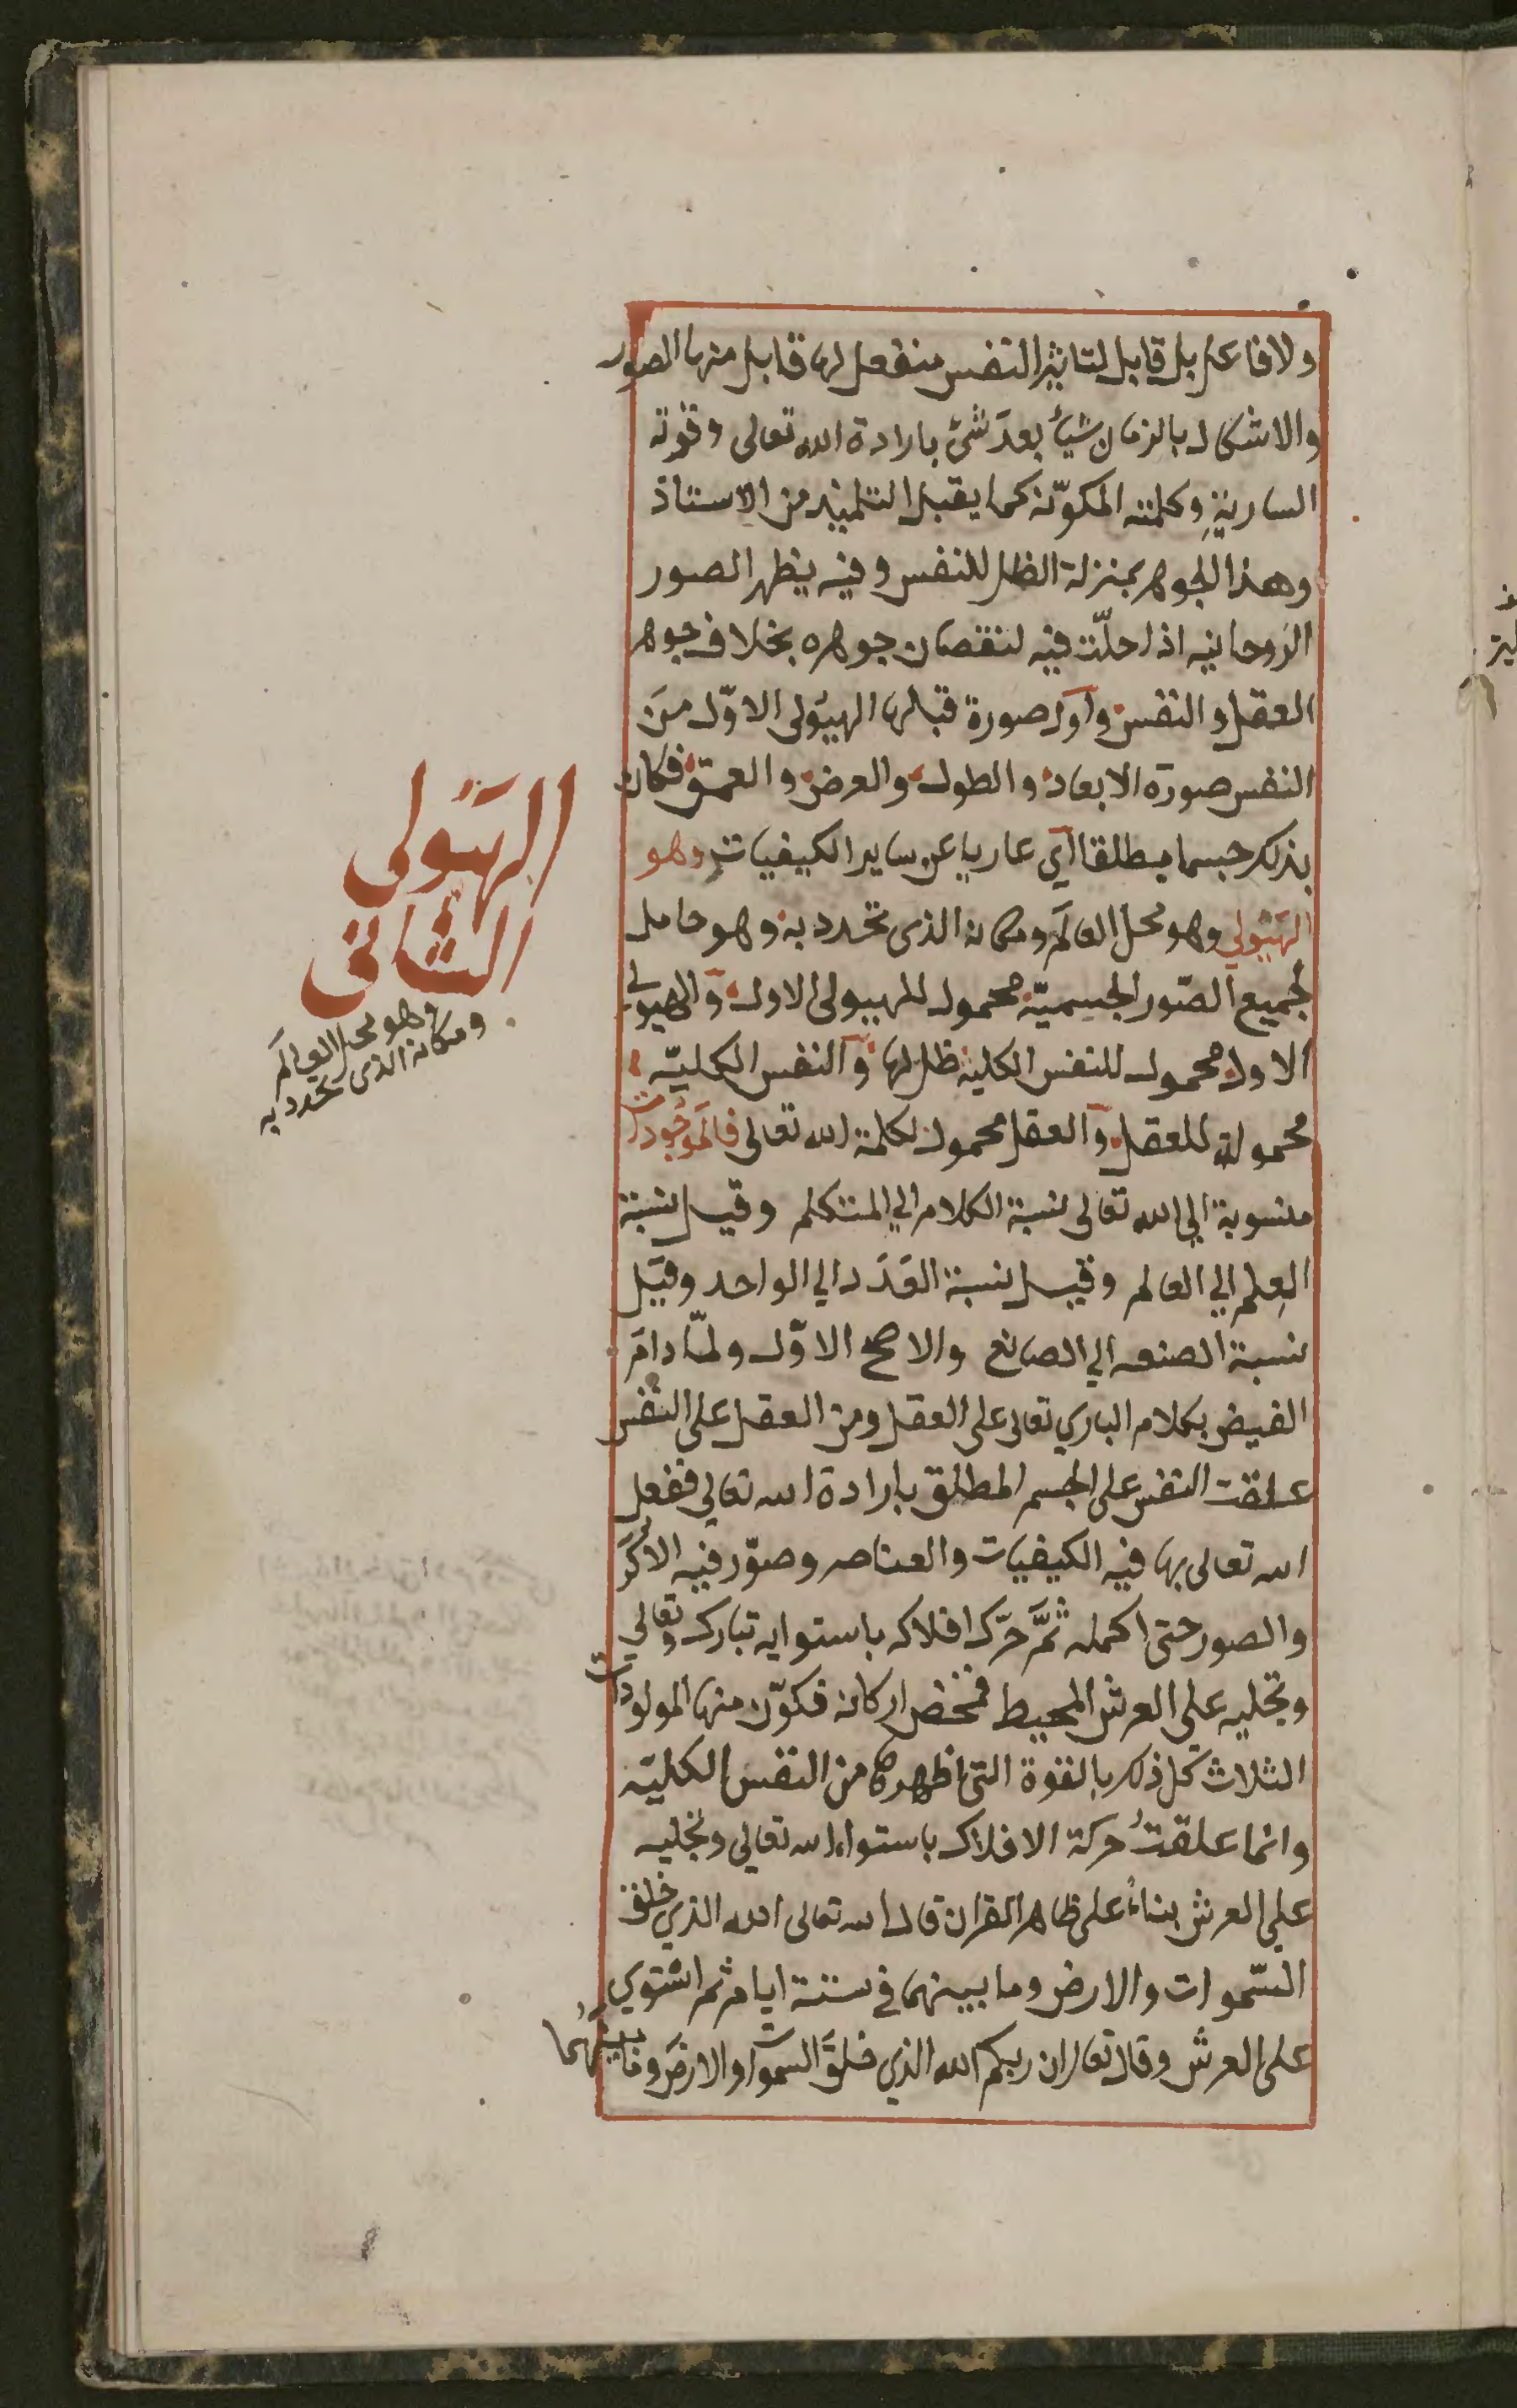 ولا فاعل بل قابل لتاثير النفس منفعل لها قابل منها الصور
والاشكال بالزمان شيأ بعد شئ بارادة الله تعالى وقوته
السارية وكلمته المكوّنة كما يقبل التلميذ من الاستاذ
وهذا الجوهر بمنزلة الظل للنفس وفيه يظهر الصور
الروحانيه اذا حلّت فيه لنقصان جوهره بخلاف جوهر
العقل والنفس واول صورة قبلها الهيولى الاوّل من
النفس صورة الابعاد والطول والعرض والعمق فكان
بذلك جسما مطلقا اي عاريا عن ساير الكيفيات وهو
الهيولي وهو محل العالم ومكانه الذى تحدد به وهو حامل
لجميع الصّور الجسميّة محمول للهيولى الاول والهيولى
الاول محمول للنفس الكلية ظل لها والنفس الكليّة
محمولة للعقل والعقل محمول لكلمة الله تعالى فالموجودات
منسوبة الي الله تعالى نسبة الكلام الي المتكلم وقيل نسبة
العلم الي العالم وقيل نسبة العدد الي الواحد وقيل
نسبة الصنعه الي الصانع والاصح الاوّل ولمّا دام
الفيض بكلام الباري تعالى على العقل ومن العقل على النفس
علقت النفس على الجسم المطلق بارادة الله تعالي ففعل
الله تعالى بها فيه الكيفيات والعناصر وصوّر فيه الاكر
والصور حتى اكمله ثمّ حرّك افلاكه باستوايه تبارك وتعالي
وتجليه علي العرش المحيط فمخض اركانه فكوّن منها المولودات
الثلاث كل ذلك بالقوة التى اظهرها من النفس الكليّه
وانما علقت حركة الافلاك باستواء الله تعالي وتجليه
علي العرش بناءً على ظاهر القران قال الله تعالى الله الذي خلق
السّموات والارض وما بينهما في ستة ايام ثم استوي
على العرش وقال تعالى ان ربكم الله الذي خلق السموات والارض وما بينهما
الهيولى
الثانى
وهو محل العالم
ومكانه الذى تحدد به